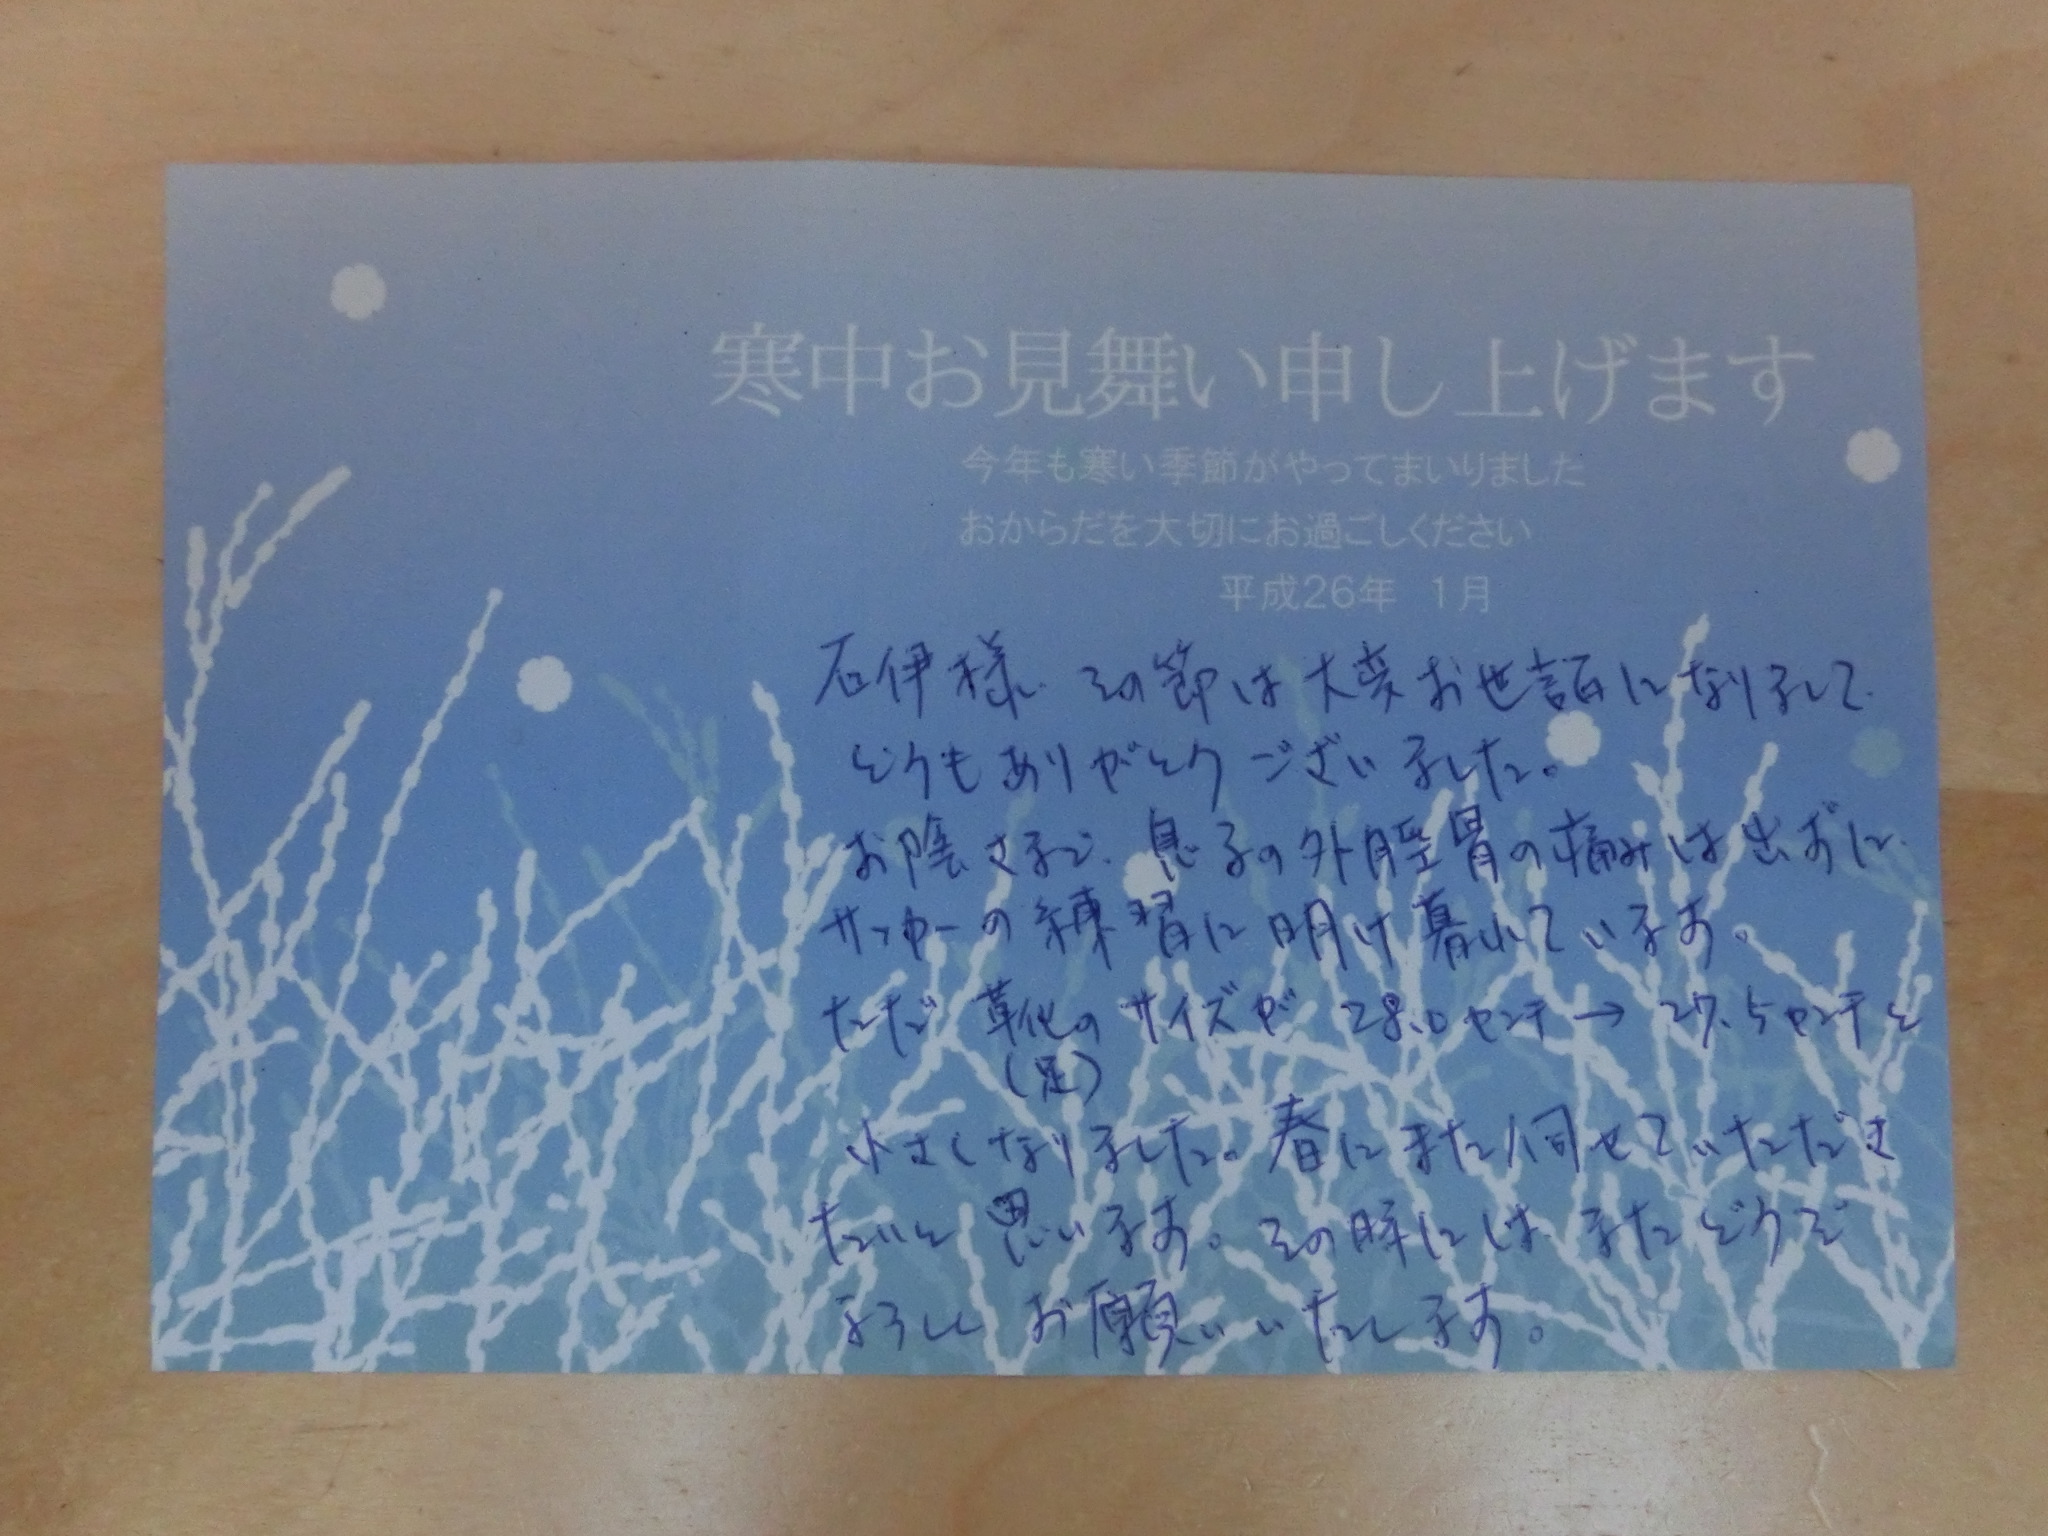 寒中お見舞い申し上げます
今年も寒い季節がやってまいりました
おからだを大切にお過ごしください
平成26年 1月
石伊様、その節は大変お世話になりまして、
どうもありがとうございました。
お陰さまで、息子の外脛骨の痛みは出ずに、
サッカーの練習に明け暮れています。
ただ 革化のサイズが 28.0センチ→27.5センチと
(足)
小さくなりました。春にまた伺せていただき
たいと思います。その時には、またどうぞ
よろしくお願いいたします。